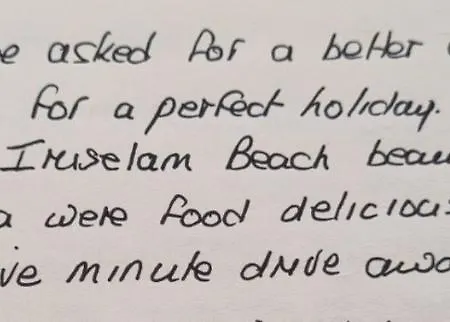 e asked for a better
for a perfect holiday.
Beach beau
a were food delicious
ive minute drive awa